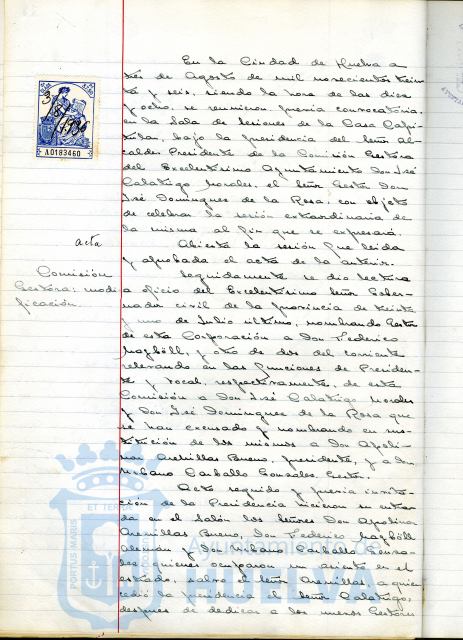 En la Ciudad de Huelva a
tres de Agosto de mil novecientos trein-
ta y seis, siendo la hora de las diez
y ocho, se reunieron, previa convocatoria,
en la Sala de Sesiones de la Casa Capi-
tular, bajo la presidencia del Señor Al-
calde Presidente de la Comisión Gestora
del Excelentísimo Ayuntamiento Don José
Calatrigo Morales, el Señor Gestor Don
José Domínguez de la Rosa, con objeto
de celebrar la sesión extraordinaria de
la misma al fin que se expresará.
acta
Abierta la sesión fue leída
y aprobada el acta de la anterior.
Comisión
Gestora: modi-
ficación.
Seguidamente se dio lectura
a oficio del Excelentísimo Señor Gober-
nador civil de la provincia de treinta
y uno de Julio último, nombrando Gestor
de esta Corporación a Don Federico
y otro de dos del corriente
relevando en las funciones de Presiden-
te y vocal, respectivamente, de esta
Comisión a Don José Calatrigo Morales
y Don José Domínguez de la Rosa que
se han excusado y nombrando en sus-
titución de los mismos a Don Apoli-
nar Arenillas Bueno, presidente, y a Don
Urbano Carballo González, Gestor.
Acto seguido y previa invita-
ción de la Presidencia hicieron su entra-
da en el salón los señores Don Apolinar
Arenillas Bueno, Don Federico
Alemán y Don Urbano Carballo Gonzá-
lez, quienes ocuparon un asiento en el
estrado, salvo el señor Arenillas, a quien
cedió la presidencia el señor Calatrigo,
después de dedicar a los nuevos Gestores
3/8/1936
A0183460
PORTUS MARIS
ET TERRAE
Ayuntamiento de
HUELVA